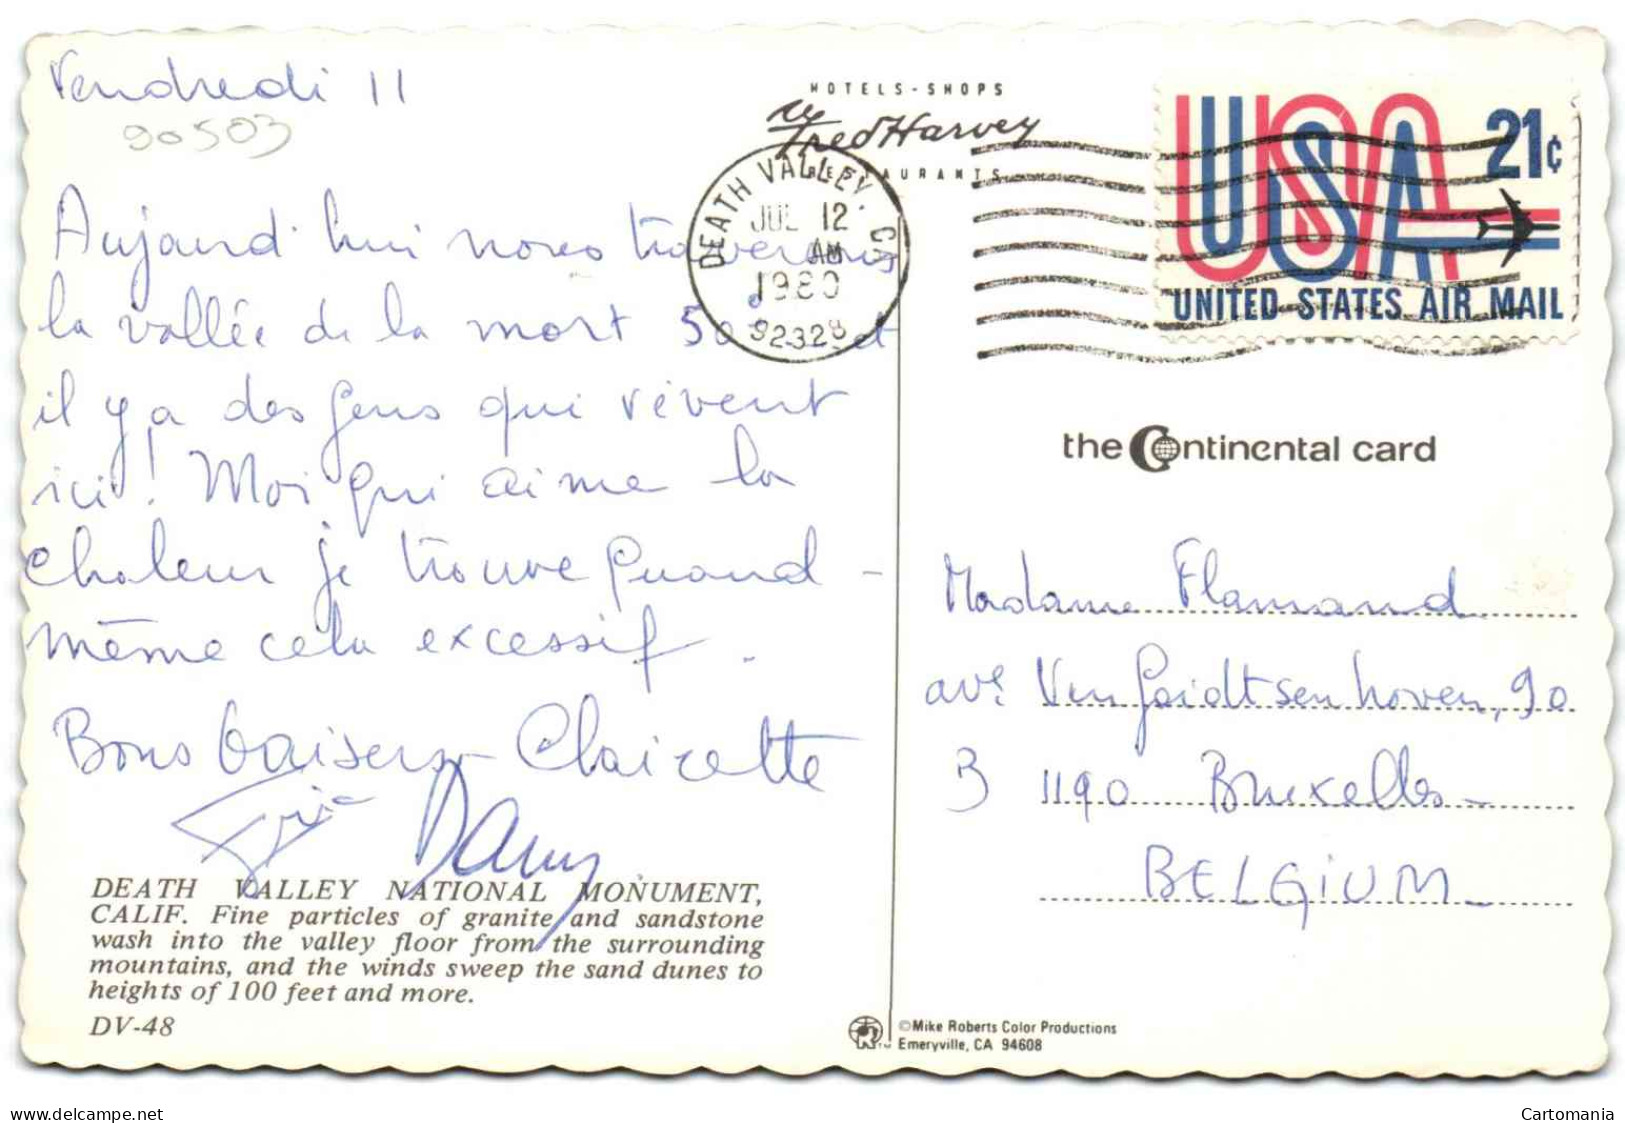 Vendredi 11
90503
Aujourd'hui nous traversons
la vallée de la mort 50° et
il y a des gens qui vivent
ici! Moi qui aime la
chaleur je trouve quand -
même cela excessif.
Bons baisers - Clairette
Eric Dany
DEATH VALLEY NATIONAL MONUMENT,
CALIF. Fine particles of granite and sandstone
wash into the valley floor from the surrounding
mountains, and the winds sweep the sand dunes to
heights of 100 feet and more.
DV-48
HOTELS-SHOPS
Fred Harvey
RESTAURANTS
DEATH VALLEY, CA
JUL 12
AM
1980
92328
USA 21¢
UNITED STATES AIR MAIL
the Continental card
Madame Flamand
ave Van Goidtsenhoven, 90
B 1190 Bruxelles -
BELGIUM -
©Mike Roberts Color Productions
Emeryville, CA 94608
www.delcampe.net
Cartomania